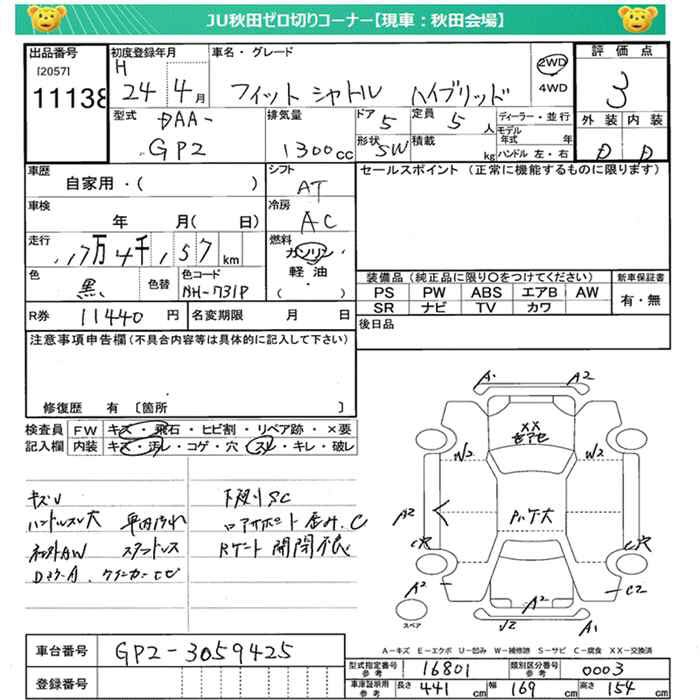 JU秋田ゼロ切りコーナー【現車：秋田会場】
出品番号
[2057]
11138
初度登録年月
H
24年4月
車名・グレード
フィットシャトル ハイブリッド
2WD
4WD
評価点
3
外装 内装
D D
型式
DAA-
GP2
排気量
1300cc
ドア
5
定員
5人
形状
SW
積載
kg
ディーラー・並行
モデル年式 年
ハンドル 左・右
車歴
自家用・( )
シフト
AT
車検
年 月( 日)
冷房
AC
走行
17万4千157km
燃料
ガソリン
軽油
・( )
色
黒
色替
色コード
NH-731P
R券 11440円
名変期限 月 日
セールスポイント (正常に機能するものに限ります)
装備品 (純正品に限り○をつけてください)
PS PW ABS エアB AW
SR ナビ TV カワ
新車保証書
有・無
後日品
注意事項申告欄 (不具合内容等は具体的に記入して下さい)
修復歴 有 〔箇所 〕
検査員記入欄
FW キズ・飛石・ヒビ割・リペア跡・×要
内装 キズ・汚レ・コゲ・穴・スレ・キレ・破レ
キズU
ハンドルスレ大
社外AW
下廻りSC
ロアサポート歪み、C
Rゲート開閉不良
A1
A2
XX
W2
W2
A2
C穴
C穴
A2
C2
A2
U2
A1
スペア
A－キズ E－エクボ U－凹み W－補修跡 S－サビ C－腐食 XX－交換済
車台番号 GP2-3059425
登録番号
型式指定番号 参考 16801
類別区分番号 参考 0003
車庫証明用 参考 長さ 441cm 幅 169cm 高さ 154cm